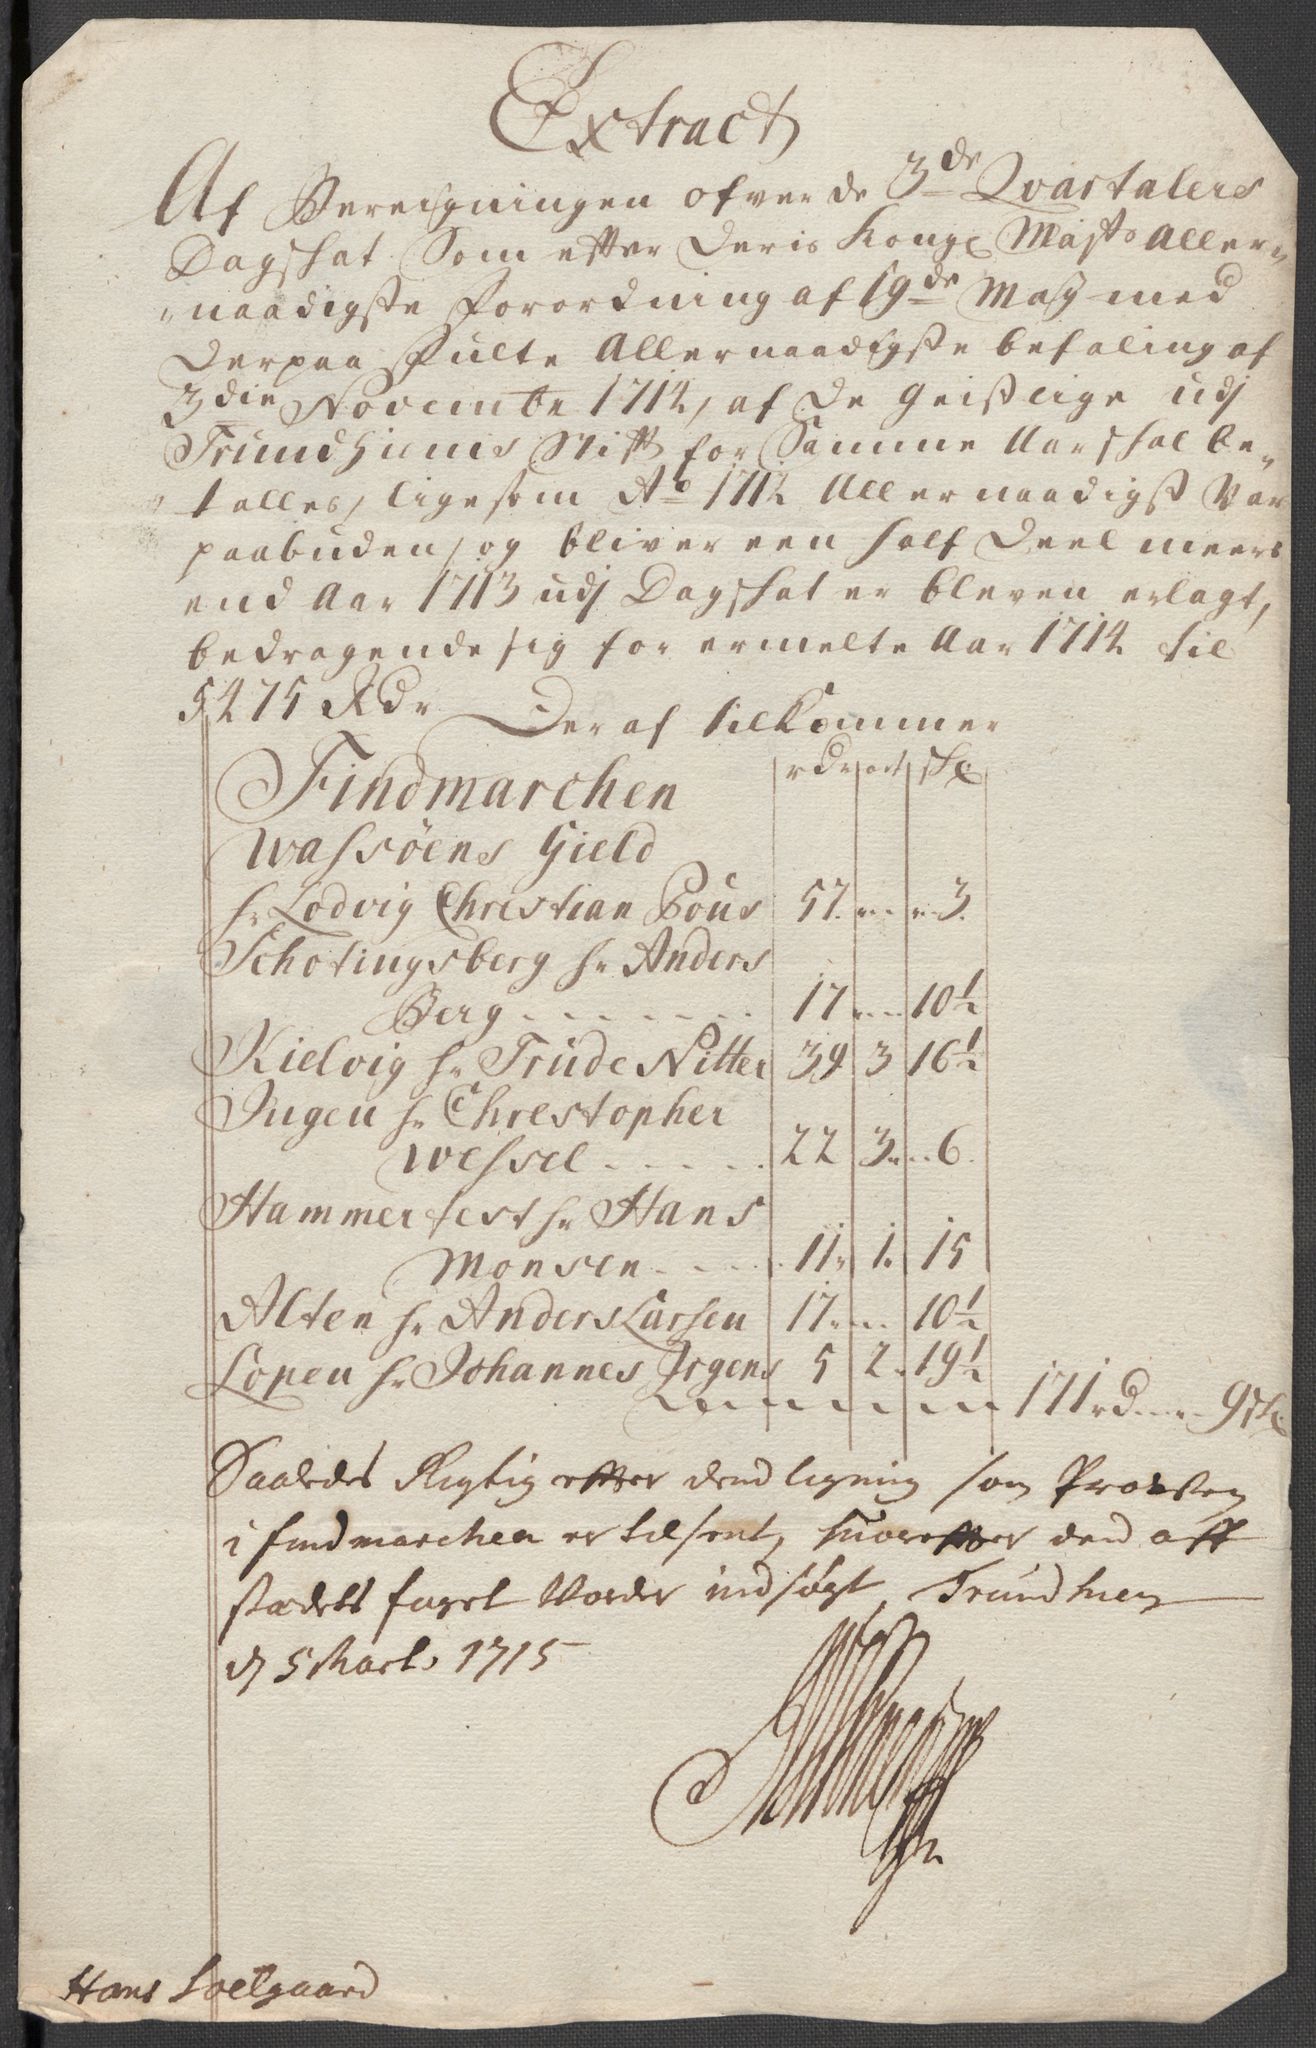 Extract
Af Beregningen ofver de 3de Qvartalers
Dagskat Som efter Deris Kongl Mayts Aller-
naadigste Forordning af 19de Maij med
Derpaa fulte Allernaadigste befaling af
3die Novembr 1714, af de Geistlige udj
Trundhiems Stift for Samme Aar skal be-
talles, ligesom Ao 1712 Allernaadigst Var
paabuden, og bliver een half Deel meere
end Aar 1713 udj Dagskat er bleven erlagt,
bedragende sig for ermelte Aar 1714 til
5475 Rdr Der af tilkommer
Findmarchen rdr ort sk
Wassöens Gield
hr Lodvig Christian Pöus 57 .. .. 3.
Schotingsberg hr Anders
Berg - - - - - - - 17 .. .. 10½
Kielvig hr Trude Nitter 39 3 16½
Ingen hr Christopher
Wessel - - - - - 22 3 .. 6.
Hammerfest hr Hans
Monsen - - - - 11 1. 15
Alten hr Anders Larsen 17 .. .. 10½
Lopen hr Johannes Jrgens 5 2 19½
171 rd .. .. 9 sk
Saaledes Rigtig efter dend ligning som Prousten
i findmarchen er tilsent, huorefter den aff
stædets foget Vorder indsøgt, Trundhiem
d 5 Marts 1715
Hans Soelgaard